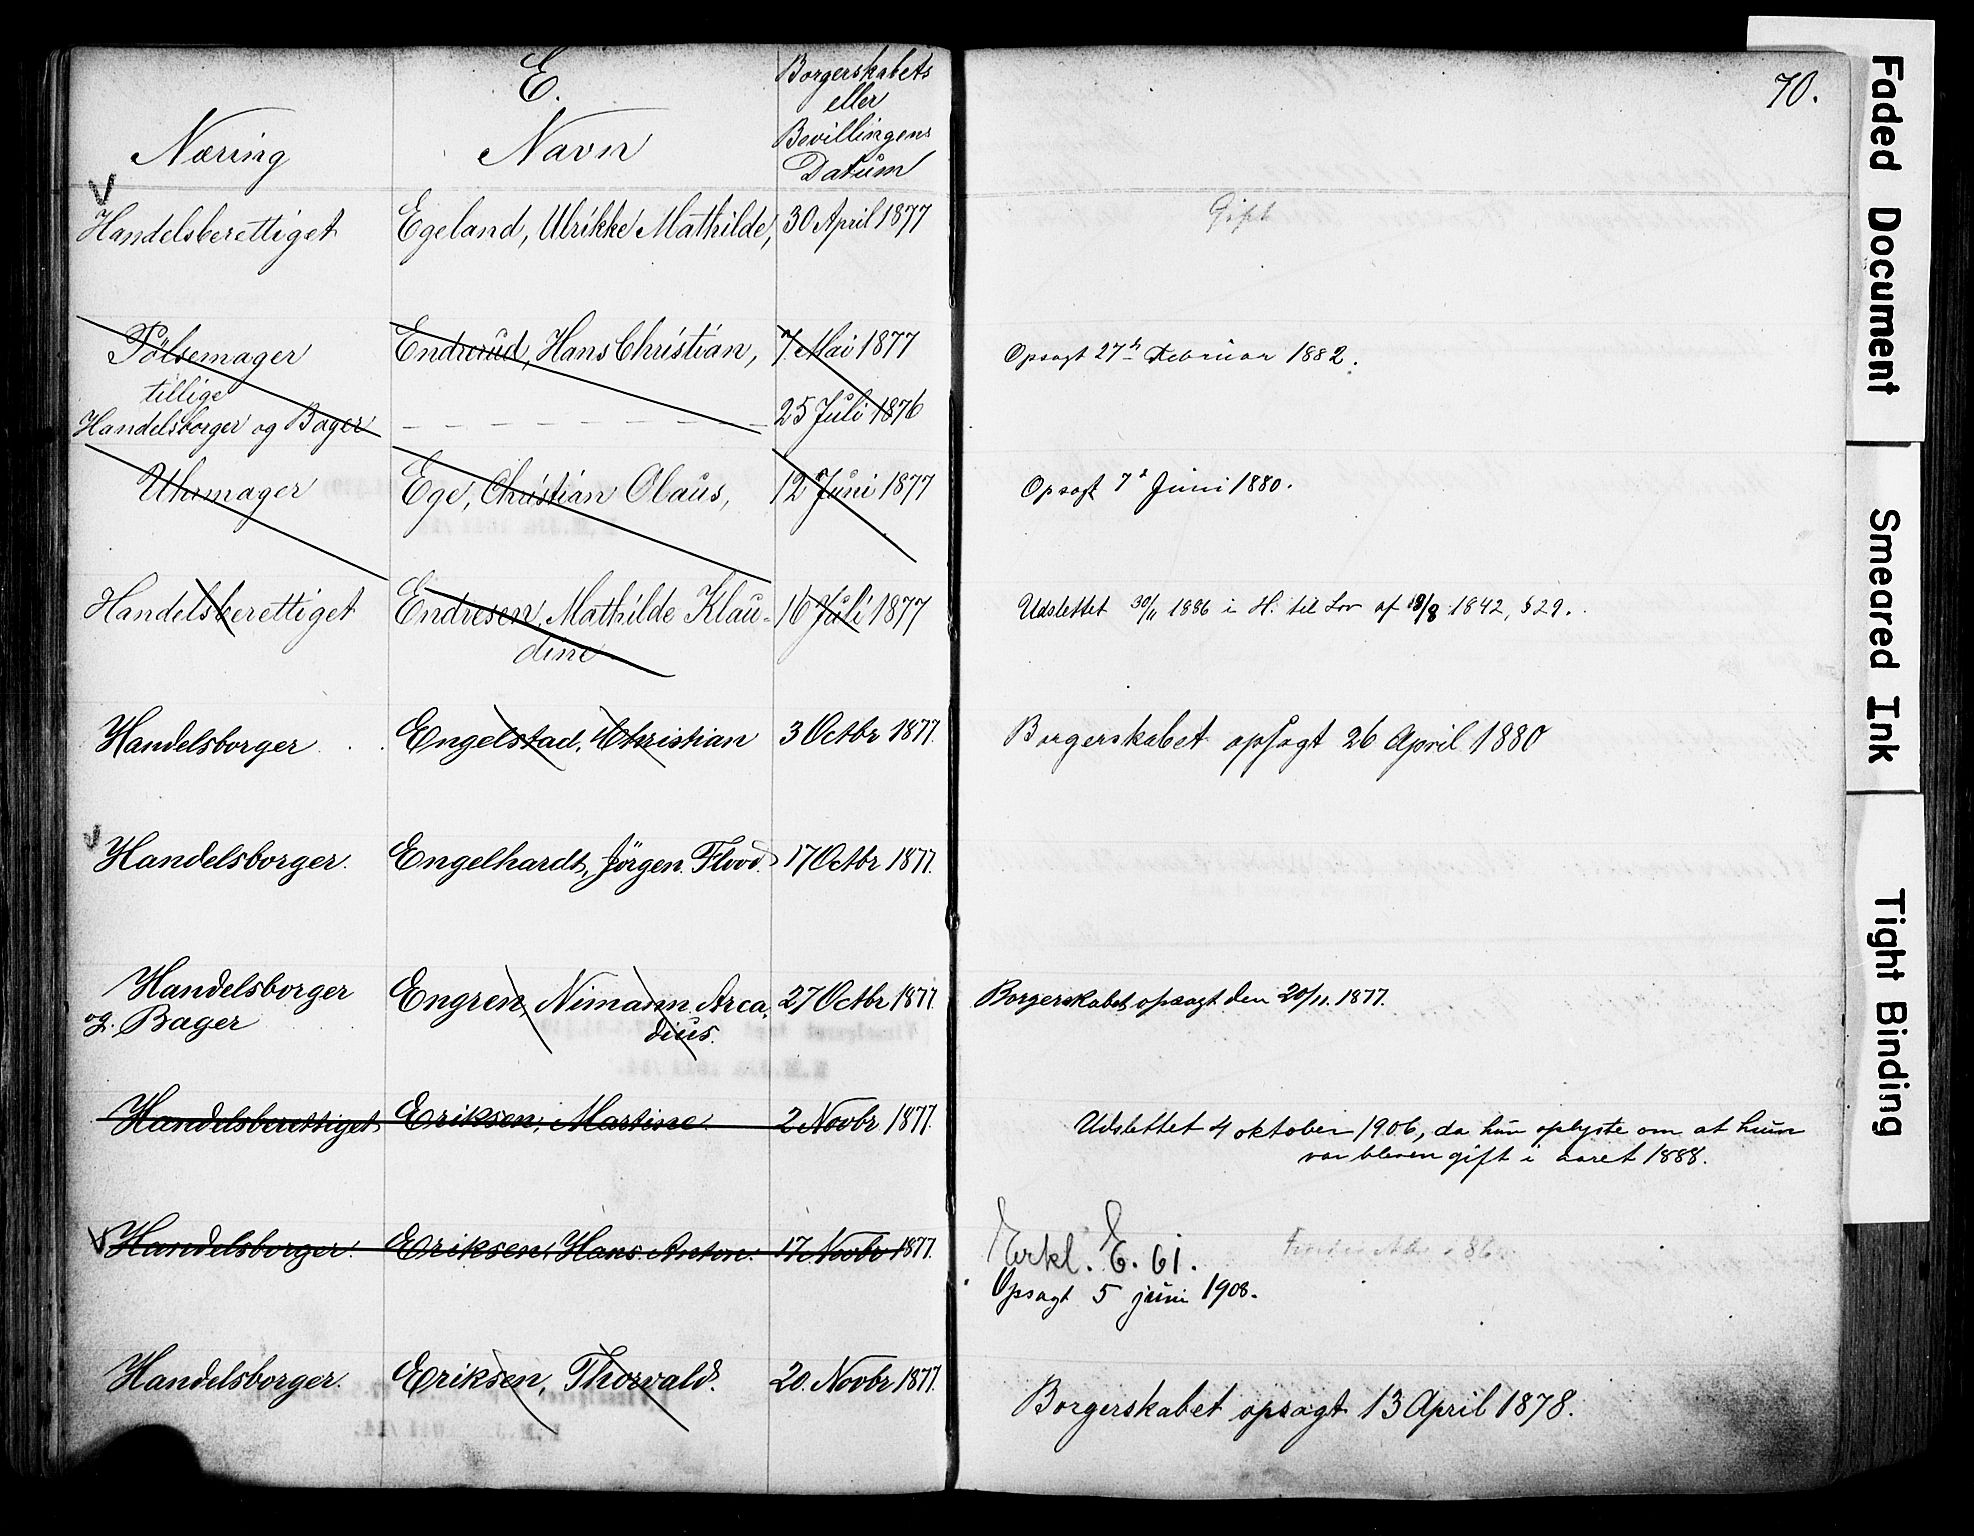 E.
Næring
Navn
Borgerskabets
eller
Bevillingens
Datum
70.
Handelsberettiget
Egeland, Ulrikke Mathilde,
30 April 1877
Gift
Pölsemager
Endrerud, Hans Christian,
7 Mai 1877
Opsagt 27de Februar 1882.
tillige
Handelsborger og Bager
— — — — — — — —
25 Juli 1876
Uhrmager
Ege, Christian Olaus,
12 Juni 1877
Opsagt 7de Juni 1880.
Handelsberettiget
Endresen, Mathilde Klau-
dine
16 Juli 1877
Udslettet 30/11 1886 i H. til Lov af 18/8 1842, §29.
Handelsborger
Engelstad, Christian
3 Octbr 1877.
Borgerskabet opsagt 26 April 1880
Handelsborger.
Engelhardt, Jörgen Flood.
17 Octbr 1877.
Handelsborger
og. Bager
Engren, Nimann Arca-
dius.
27 Octbr 1877
Borgerskabet opsagt den 20/11. 1877.
Handelsberettiget
Eriksen, Martine
2 Novbr 1877.
Udslettet 4 oktober 1906, da hun oplyste om at hun
var bleven gift i aaret 1888.
Handelsborger.
Eriksen, Hans Anton.
17 Novbr 1877.
Erkl. E. 61.
Opsagt 5 juni 1908.
Handelsborger.
Eriksen, Thorvald.
20. Novbr 1877.
Borgerskabet opsagt 13 April 1878.
Faded Document
Smeared Ink
Tight Binding